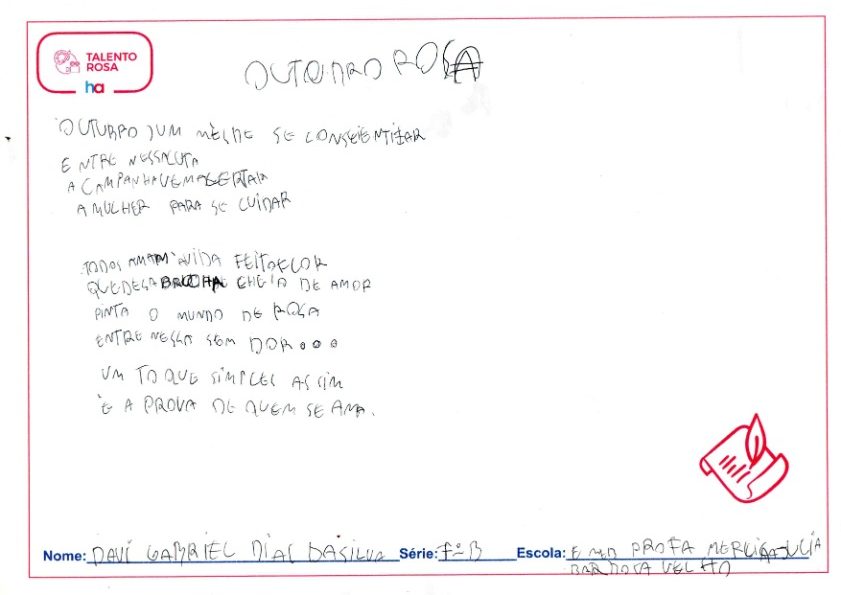 TALENTO
ROSA
ha
OUTOBRO ROSA
OUTURBO JUM MÊS DE SE CONSCIENTIZAR
ENTRE NESSALUTA
A CAMPANHAVEMALERTAR
A MULHER PARA SE CUIDAR
TODOS AMAM AVIDA FEITOFLOR
QUEDESABROCHA CHEIA DE AMOR
PINTA O MUNDO DE ROSA
ENTRE NESSA SEM DOR...
UM TOQUE SIMPLES ASSIM
É A PROVA DE QUEM SE AMA.
Nome: DAVI GABRIEL DIAS DASILVA Série: Escola: PROFA
BARBOSA VELHO